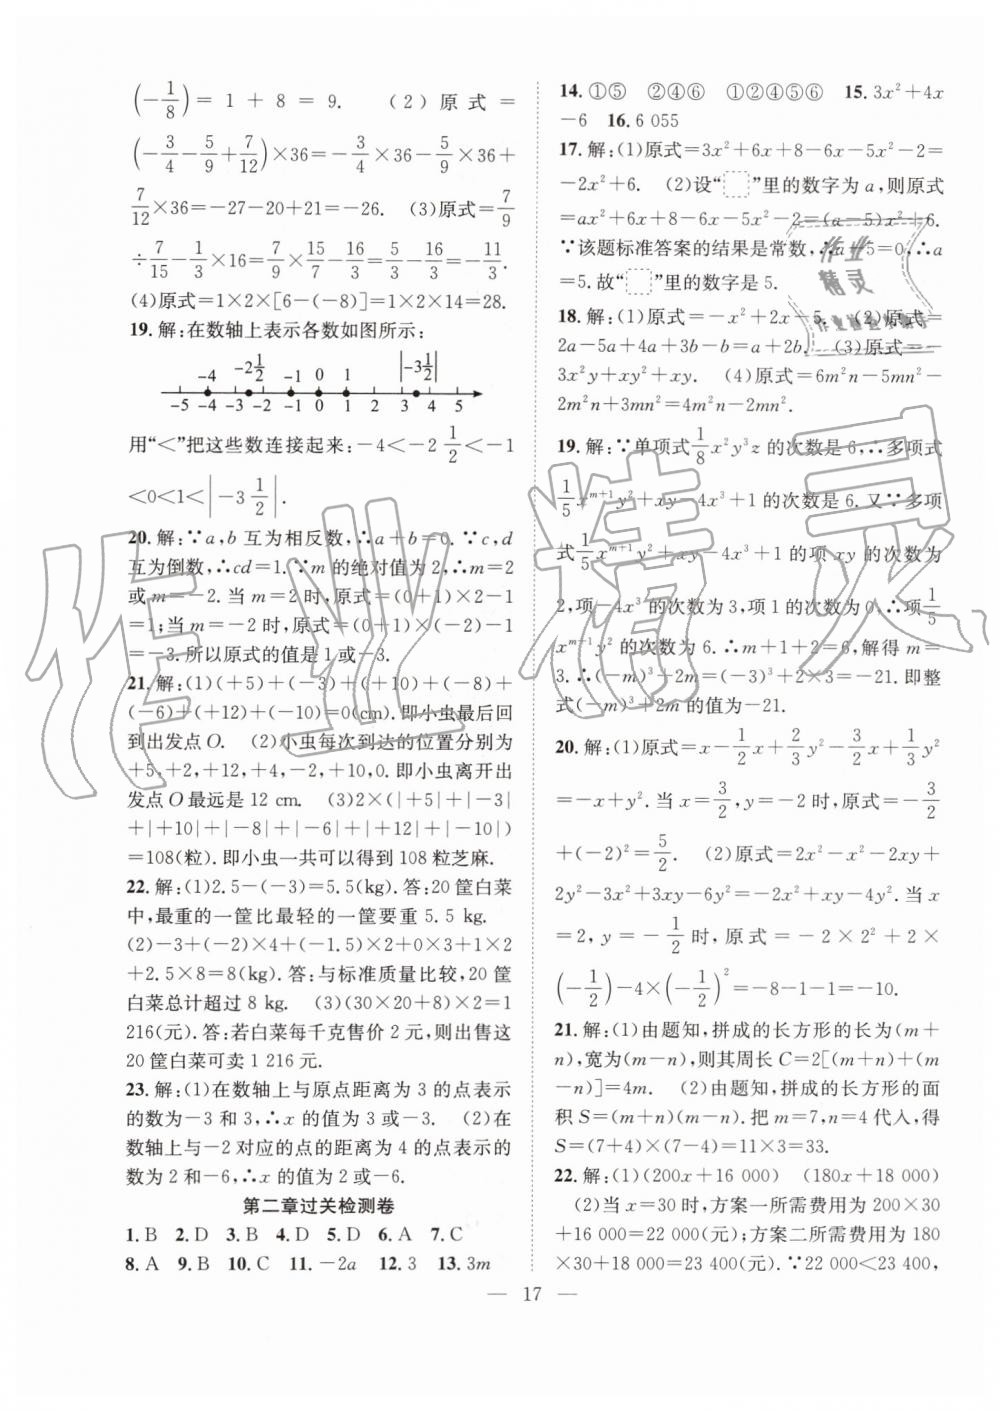 (−1/8)=1+8=9. (2)原式=
(−3/4−5/9+7/12)×36=−3/4×36−5/9×36+
7/12×36=−27−20+21=−26. (3)原式=7/9
÷7/15−1/3×16=7/9×15/7−16/3=5/3−16/3=−11/3.
(4)原式=1×2×[6−(−8)]=1×2×14=28.
19.解:在数轴上表示各数如图所示:
−4 −2 1/2 −1 0 1 |−3 1/2|
−5 −4 −3 −2 −1 0 1 2 3 4 5
用“<”把这些数连接起来:−4<−2 1/2<−1
<0<1<|−3 1/2|.
20.解:∵a,b互为相反数,∴a+b=0.∵c,d
互为倒数,∴cd=1.∵m的绝对值为2,∴m=2
或m=−2.当m=2时,原式=(0+1)×2−1
=1;当m=−2时,原式=(0+1)×(−2)−1
=−3.所以原式的值是1或−3.
21.解:(1)(+5)+(−3)+(+10)+(−8)+
(−6)+(+12)+(−10)=0(cm).即小虫最后回
到出发点O. (2)小虫每次到达的位置分别为
+5,+2,+12,+4,−2,+10,0.即小虫离开出
发点O最远是12 cm. (3)2×(|+5|+|−3|
+|+10|+|−8|+|−6|+|+12|+|−10|)
=108(粒).即小虫一共可以得到108粒芝麻.
22.解:(1)2.5−(−3)=5.5(kg).答:20筐白菜
中,最重的一筐比最轻的一筐要重5.5 kg.
(2)−3+(−2)×4+(−1.5)×2+0×3+1×2
+2.5×8=8(kg).答:与标准质量比较,20筐
白菜总计超过8 kg. (3)(30×20+8)×2=1
216(元).答:若白菜每千克售价2元,则出售这
20筐白菜可卖1 216元.
23.解:(1)在数轴上与原点距离为3的点表示
的数为−3和3,∴x的值为3或−3. (2)在
数轴上与−2对应的点的距离为4的点表示的
数为2和−6,∴x的值为2或−6.
第二章过关检测卷
1.B 2.D 3.B 4.D 5.D 6.A 7.C
8.A 9.B 10.C 11.−2a 12.3 13.3m
14.①⑤ ②④⑥ ①②④⑤⑥ 15.3x²+4x
−6 16.6 055
17.解:(1)原式=3x²+6x+8−6x−5x²−2=
−2x²+6. (2)设“ ”里的数字为a,则原式
=ax²+6x+8−6x−5x²−2=(a−5)x²+6.
∵该题标准答案的结果是常数,∴a−5=0,∴a
=5.故“ ”里的数字是5.
18.解:(1)原式=−x²+2x−5. (2)原式=
2a−5a+4a+3b−b=a+2b. (3)原式=−
3x²y+xy²+xy. (4)原式=6m²n−5mn²−
2m²n+3mn²=4m²n−2mn².
19.解:∵单项式1/8x²y³z的次数是6,∴多项式
1/5x^(m+1)y²+xy−4x³+1的次数是6.又∵多项
式1/5x^(m+1)y²+xy−4x³+1的项xy的次数为
2,项−4x³的次数为3,项1的次数为0,∴项1/5
x^(m+1)y²的次数为6.∴m+1+2=6,解得m=
3.∴(−m)³+2m=(−3)³+2×3=−21.即整
式(−m)³+2m的值为−21.
20.解:(1)原式=x−1/2x+2/3y²−3/2x+1/3y²
=−x+y².当x=3/2,y=−2时,原式=−3/2
+(−2)²=5/2. (2)原式=2x²−x²−2xy+
2y²−3x²+3xy−6y²=−2x²+xy−4y².当x
=2,y=−1/2时,原式=−2×2²+2×
(−1/2)−4×(−1/2)²=−8−1−1=−10.
21.解:(1)由题知,拼成的长方形的长为(m+
n),宽为(m−n),则其周长C=2[(m+n)+(m
−n)]=4m. (2)由题知,拼成的长方形的面
积S=(m+n)(m−n).把m=7,n=4代入,得
S=(7+4)×(7−4)=11×3=33.
22.解:(1)(200x+16 000) (180x+18 000)
(2)当x=30时,方案一所需费用为200×30
+16 000=22 000(元);方案二所需费用为180
×30+18 000=23 400(元).∵22 000<23 400,
— 17 —
作业精灵
作业
精灵